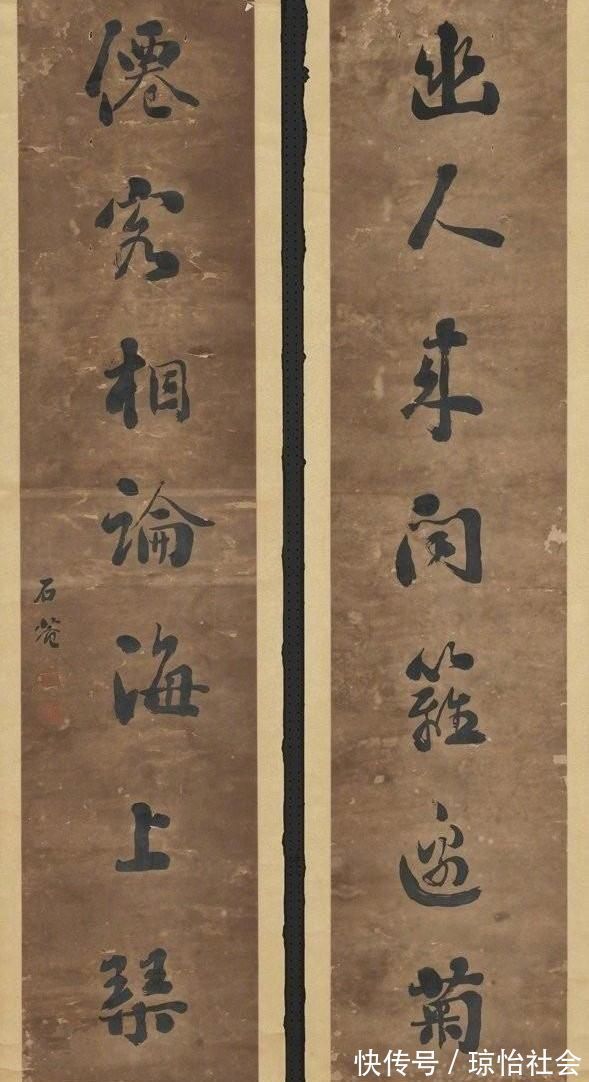 幽人来問籬邊菊
僊客相論海上琴
石菴
快传号 / 琼怡社会